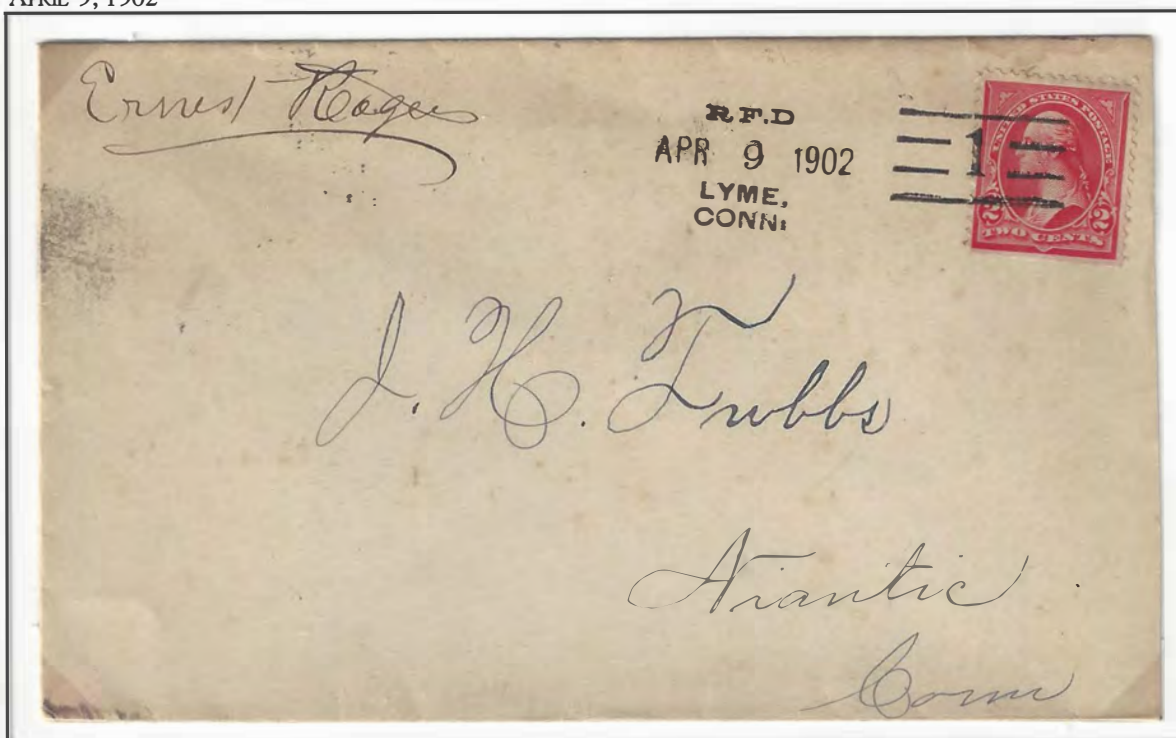 APRIL 9, 1902
Ernest Rogers
R.F.D
APR 9 1902
LYME,
CONN.
1
UNITED STATES POSTAGE
2 2
TWO CENTS
J. H. Tubbs
Niantic
Conn